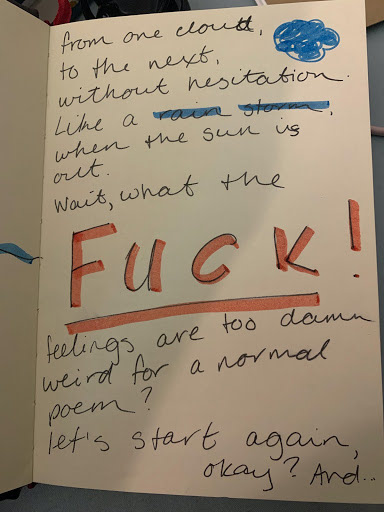 from one cloud,
to the next,
without hesitation.
Like a rain storm,
when the sun is
out.
Wait, what the
FUCK!
feelings are too damn
weird for a normal
poem?
let's start again,
okay? And..